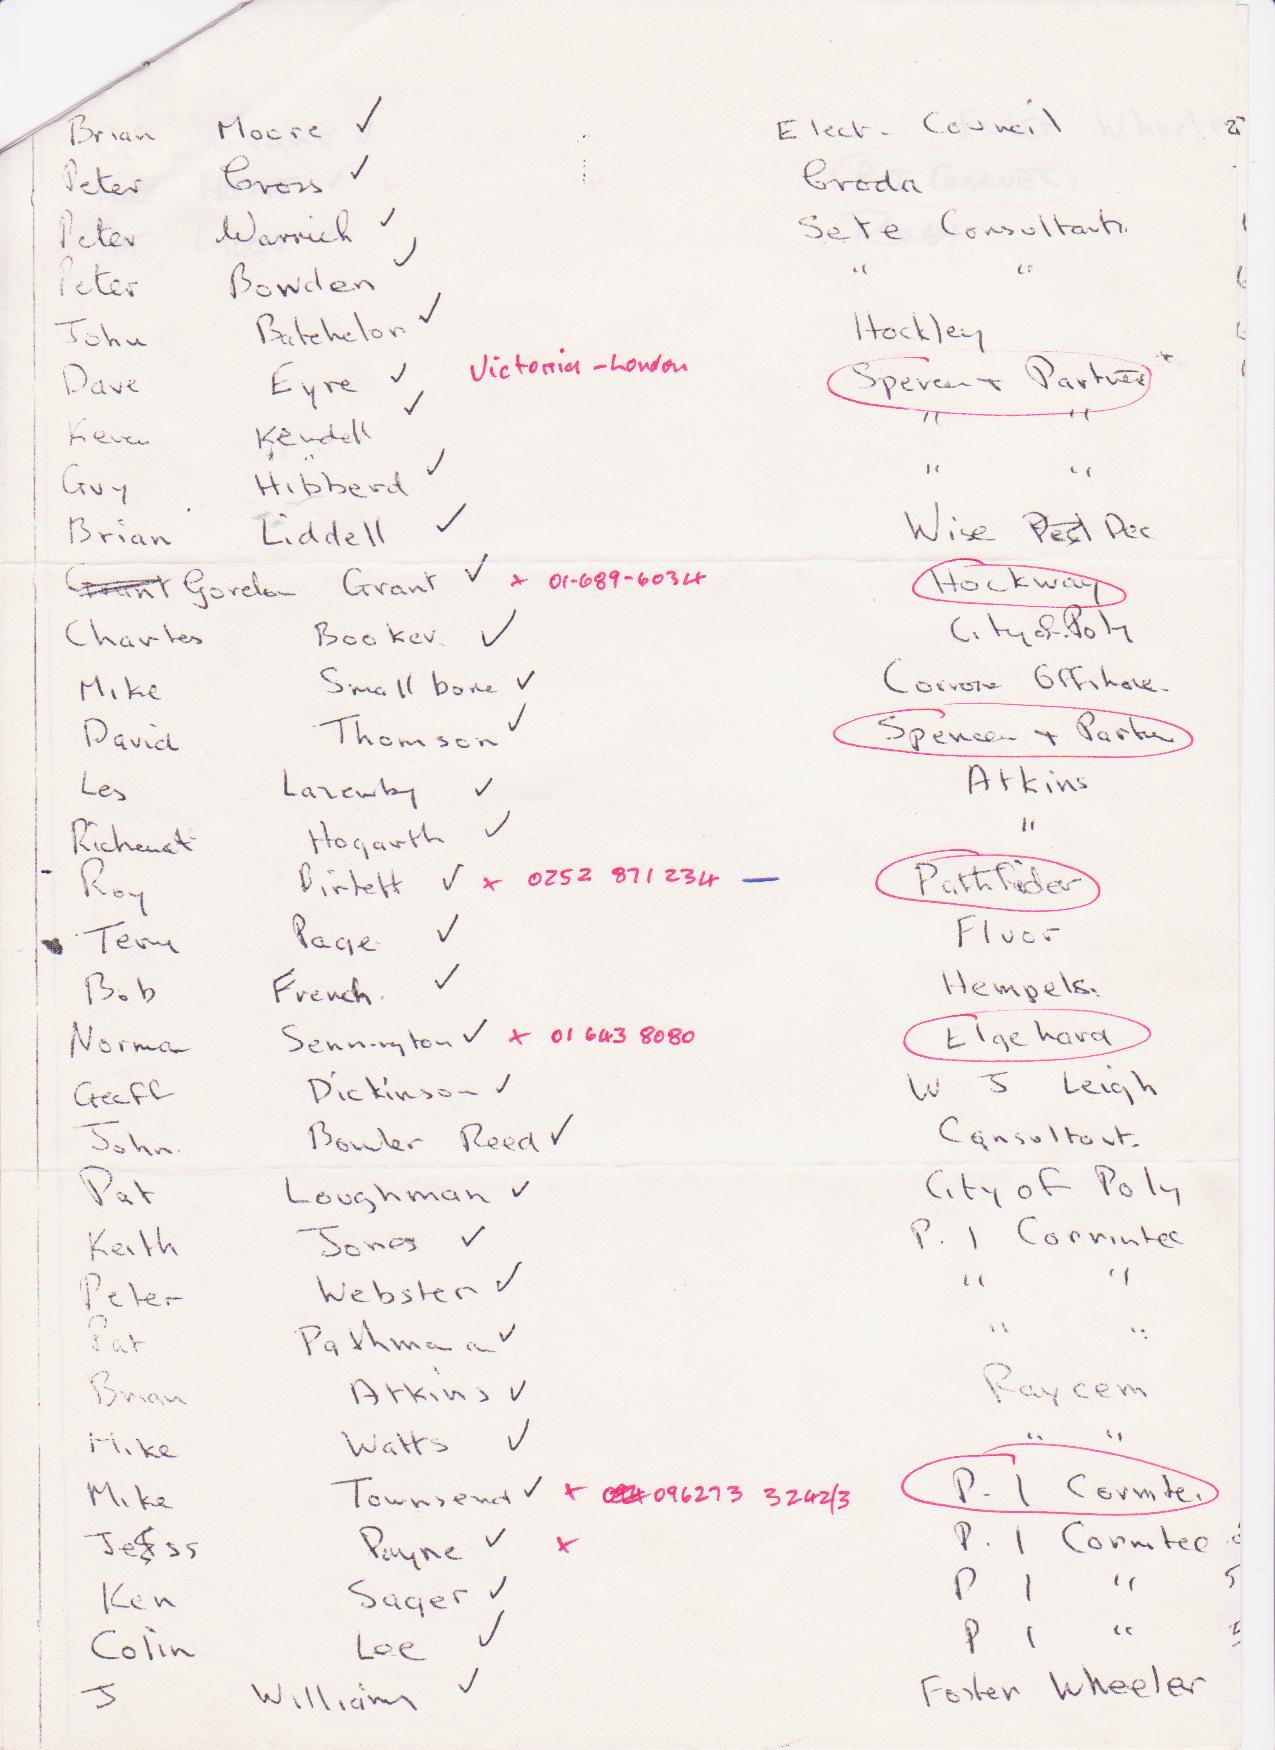 Brian Moore ✓ Elect. Council
Peter Cross ✓ Croda
Peter Warrich ✓ Sete Consultants.
Peter Bowden ✓ " "
John Batchelor ✓ Hockley
Dave Eyre ✓ Victoria - London Spencer + Partner
Keven Kendell ✓ " "
Guy Hibberd ✓ " "
Brian Liddell ✓ Wise Dec
Grant Gordon Grant ✓ x 01-689-6034 Hockway
Charles Booker. ✓ City of. Poly
Mike Smallbone ✓ Offshore.
David Thomson ✓ Spencer + Partn
Les Lazenby ✓ Atkins
Hogarth ✓ "
Roy ✓ x 0252 871 234 — Pathfinder
Terry Page ✓ Fluor
Bob French. ✓ Hempels.
Norman Sennington ✓ x 01 643 8080 Elgehard
Geoff Dickinson ✓ W J Leigh
John. Bowler Reed ✓ Consultant.
Pat Loughman ✓ City of Poly
Keith Jones ✓ P. 1 Corrintec
Peter Webster ✓ " "
Pat Pathmana ✓ " "
Brian Atkins ✓ Raycem
Mike Watts ✓ " "
Mike Townsend ✓ x 096273 3242/3 P. 1 Corrnte.
Jess Payne ✓ x P. 1 Corrntec
Ken Sager ✓ P 1 "
Colin Lee ✓ P 1 "
J Williams ✓ Foster Wheeler